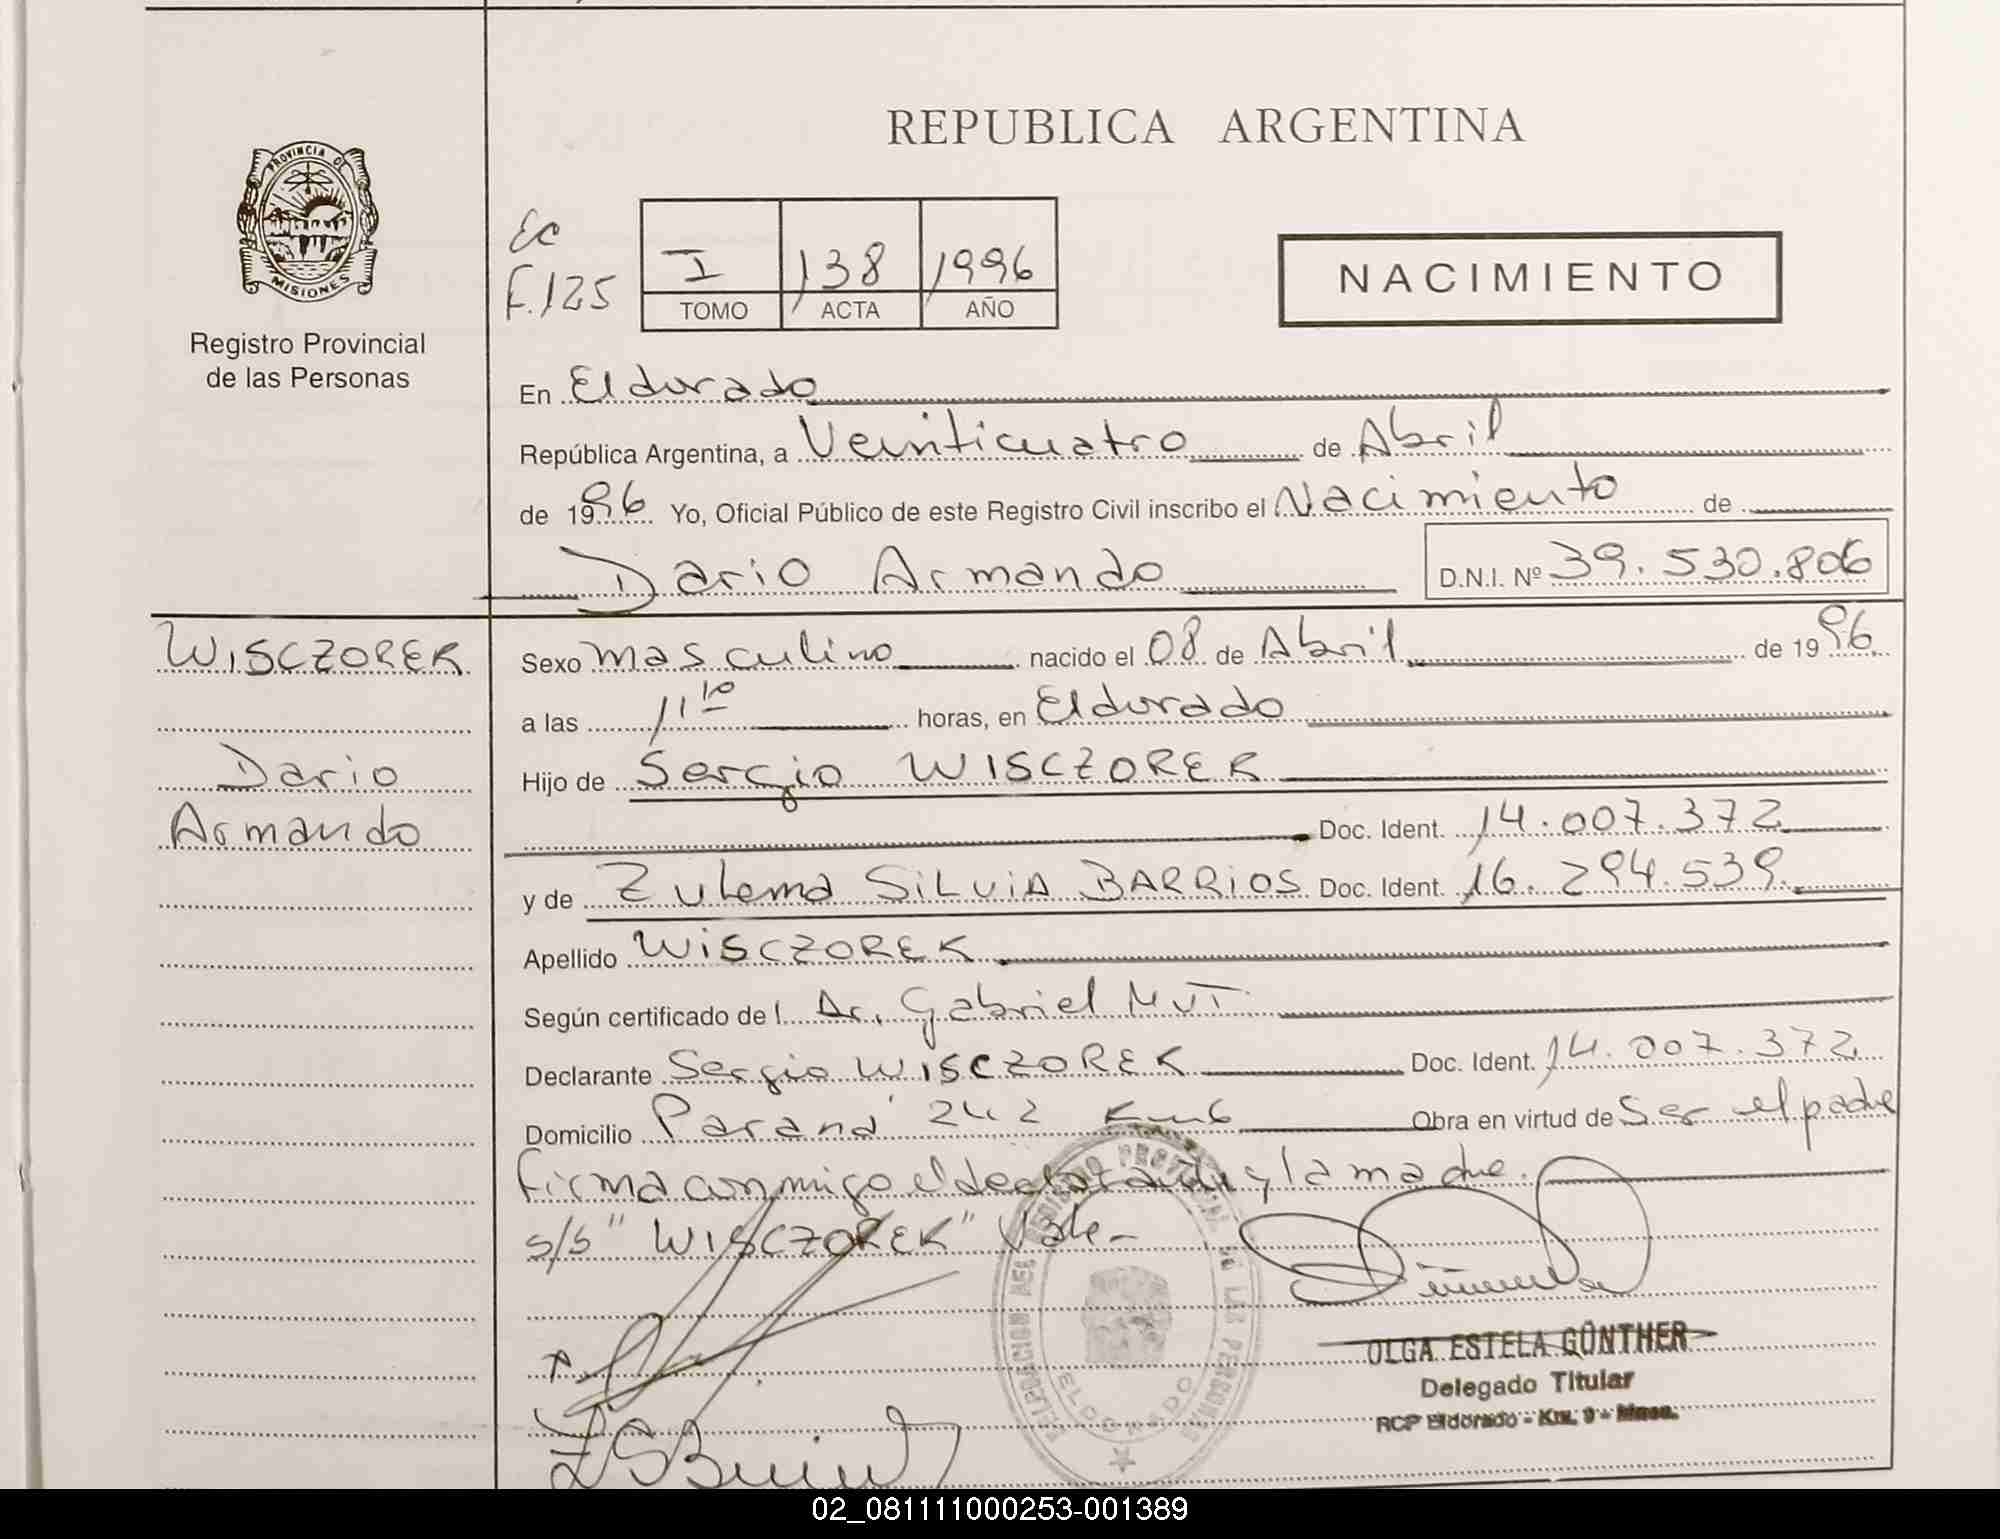 REPUBLICA ARGENTINA
PROVINCIA DE
MISIONES
Registro Provincial
de las Personas
Ec
F.125
I 138 1996
TOMO ACTA AÑO
NACIMIENTO
En Eldorado
República Argentina, a Veinticuatro de Abril
de 1996 Yo, Oficial Público de este Registro Civil inscribo el Nacimiento de
Dario Armando D.N.I. Nº 39.530.806
WISCZOREK
Dario
Armando
Sexo masculino nacido el 08 de Abril de 1996
a las 11 10 horas, en Eldorado
Hijo de Sergio WISCZOREK
Doc. Ident. 14.007.372
y de Zulema SILVIA BARRIOS Doc. Ident. 16.294.539
Apellido WISCZOREK
Según certificado del Dr. Gabriel MUT
Declarante Sergio WISCZOREK Doc. Ident. 14.007.372
Domicilio Paraná 242 Km 6 Obra en virtud de Ser el padre
firma conmigo el declarante y la madre.
s/s "WISCZOREK" Vale-
DELEGACION DEL REGISTRO PROVINCIAL DE LAS PERSONAS
ELDORADO
OLGA ESTELA GÜNTHER
Delegado Titular
RCP Eldorado - Km. 9 - Mnes.
02_081111000253-001389